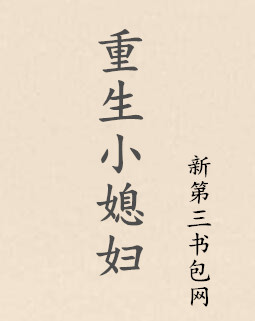 重生小媳妇
新第三书包网